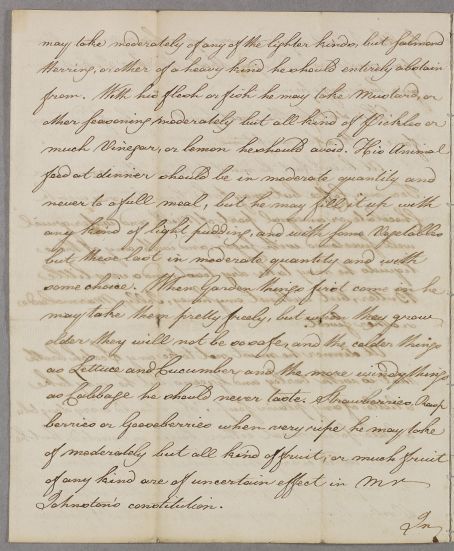 may take moderately of any of the lighter kinds, but Salmond
Herring, or other of a heavy kind he should entirely abstain
from. With his flesh or fish he may take Mustard, or
other seasoning moderately but all kind of Pickles or
much Vinegar, or lemon he should avoid. His Animal
food at dinner should be in moderate quantity and
never to a full meal, but he may fill it up with
any kind of light pudding, and with some Vegetables
but these last in moderate quantity and with
some choice. When Garden things first come in he
may take them pretty freely, but when they grow
older they will not be so safe, and the colder things
as Lettuce and Cucumber and the more windy things
as Cabbage he should never taste. Strawberries, Rasp
berries or Gooseberries when very ripe he may take
of moderately but all kind of fruit, or much fruit
of any kind are of uncertain effect in Mr
Johnston's constitution.
In